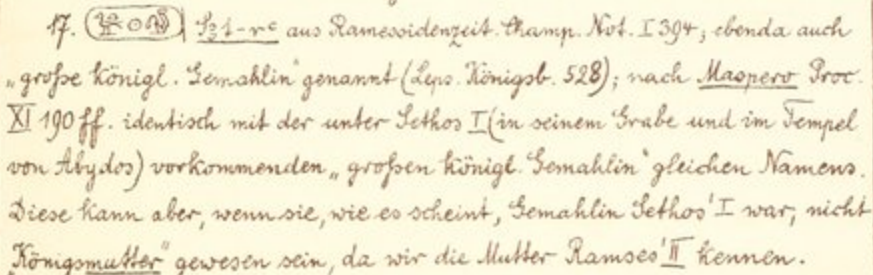 17. S3t-rc aus Ramessidenzeit. Champ. Not. I 394; ebenda auch
„große königl. Gemahlin" genannt (Leps. Königsb. 528); nach Maspero Proc.
XI 190 ff. identisch mit der unter Sethos I (in seinem Grabe und im Tempel
von Abydos) vorkommenden „großen königl. Gemahlin" gleichen Namens.
Diese kann aber, wenn sie, wie es scheint, Gemahlin Sethos' I war, nicht
„Königsmutter" gewesen sein, da wir die Mutter Ramses' II kennen.